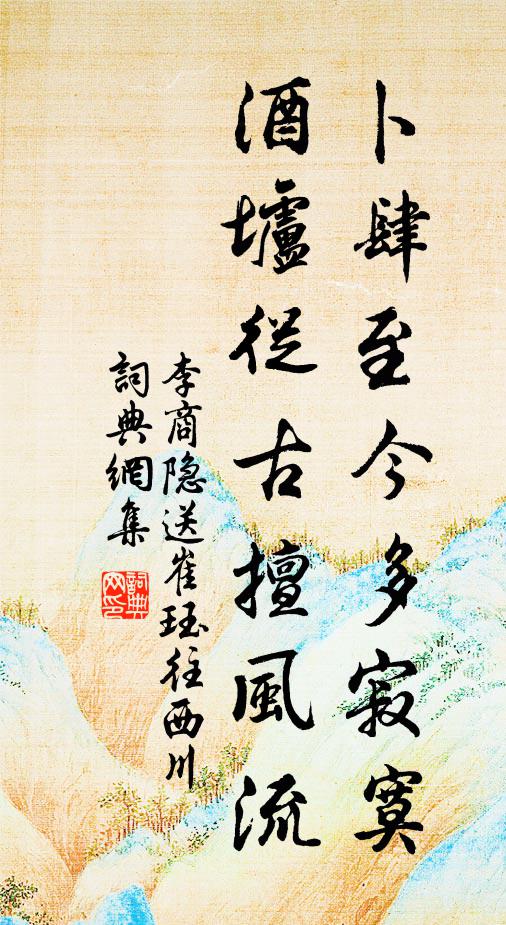 卜肆至今多寂寞
酒壚從古擅風流
李商隐送崔珏往西川
詞典網集
詞典網印